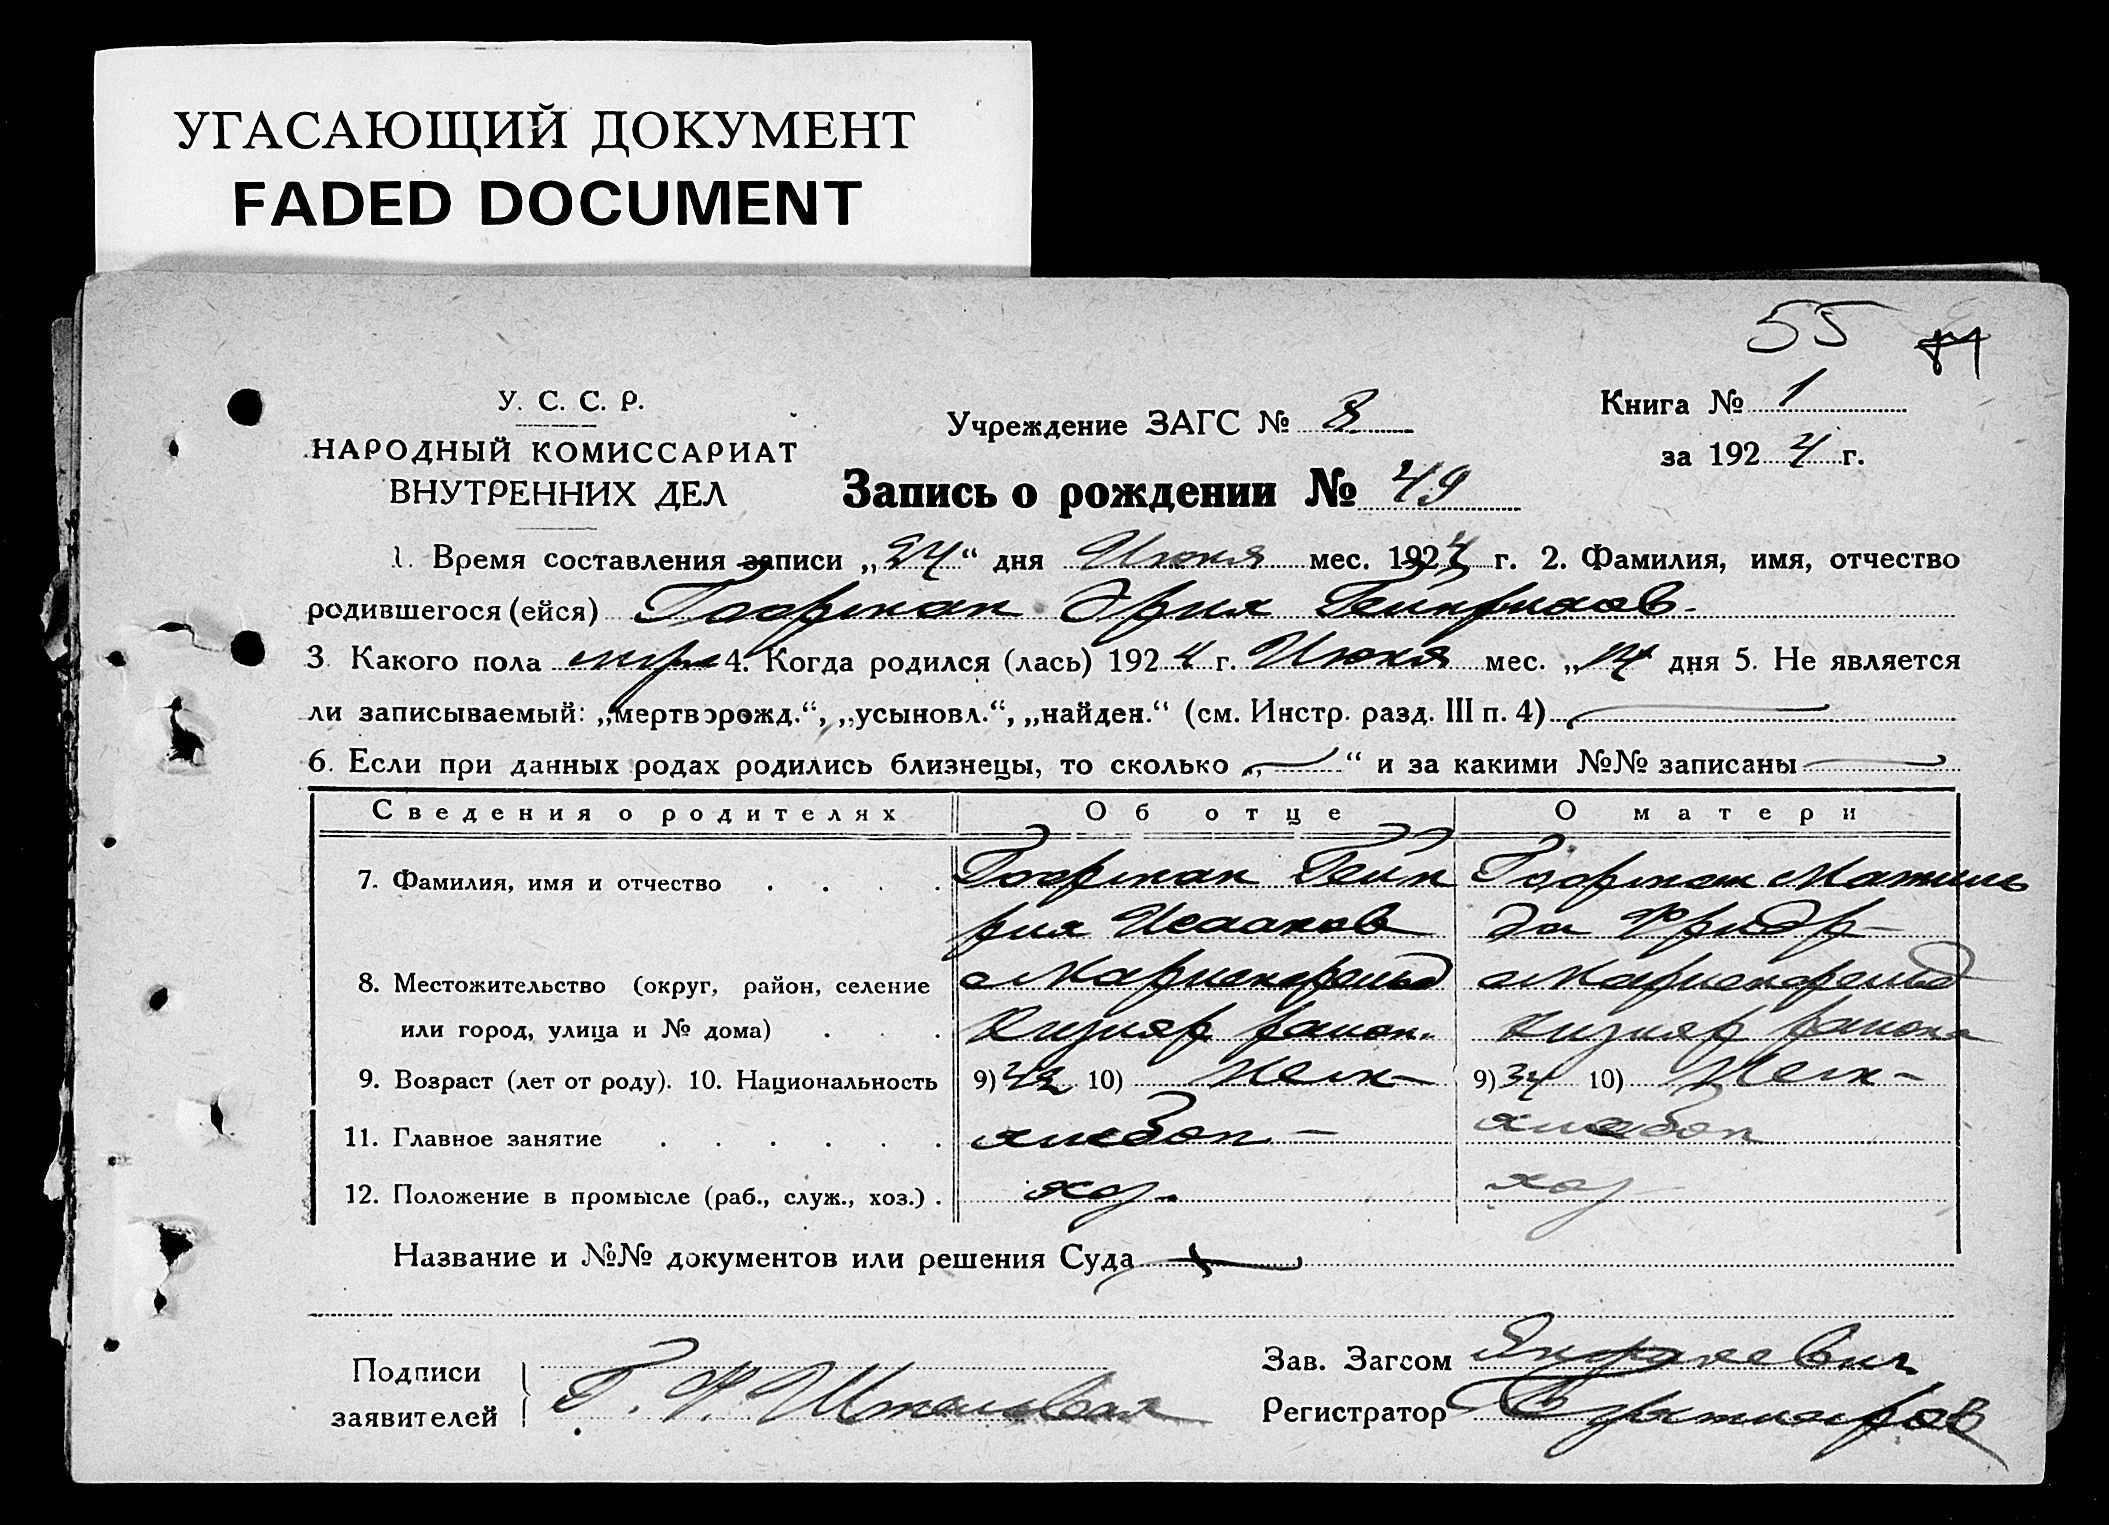 УГАСАЮЩИЙ ДОКУМЕНТ
FADED DOCUMENT
55
У. С. С. Р.
НАРОДНЫЙ КОМИССАРИАТ
ВНУТРЕННИХ ДЕЛ
Учреждение ЗАГС № 8
Книга № 1
за 1924 г.
Запись о рождении № 49
1. Время составления записи „24“ дня Июня мес. 1924 г. 2. Фамилия, имя, отчество
родившегося (ейся) Гофман Эрих Гейнрихов.
3. Какого пола муж 4. Когда родился (лась) 1924 г. Июня мес. „14 дня 5. Не является
ли записываемый: „мертворожд.“, „усыновл.“, „найден.“ (см. Инстр. разд. III п. 4)
6. Если при данных родах родились близнецы, то сколько „—“ и за какими №№ записаны —
Сведения о родителях Об отце О матери
7. Фамилия, имя и отчество Гофман Гейн Гофман Матиль
рих Исааков да Фридр-
8. Местожительство (округ, район, селение Мариенфельд Мариенфельд
или город, улица и № дома) района
9. Возраст (лет от роду). 10. Национальность 9) 42 10) Нем- 9) 34 10) Нем-
11. Главное занятие хлебоп – хлебоп
12. Положение в промысле (раб., служ., хоз.) хоз. хоз
Название и №№ документов или решения Суда
Подписи
заявителей
Зав. Загсом
Регистратор